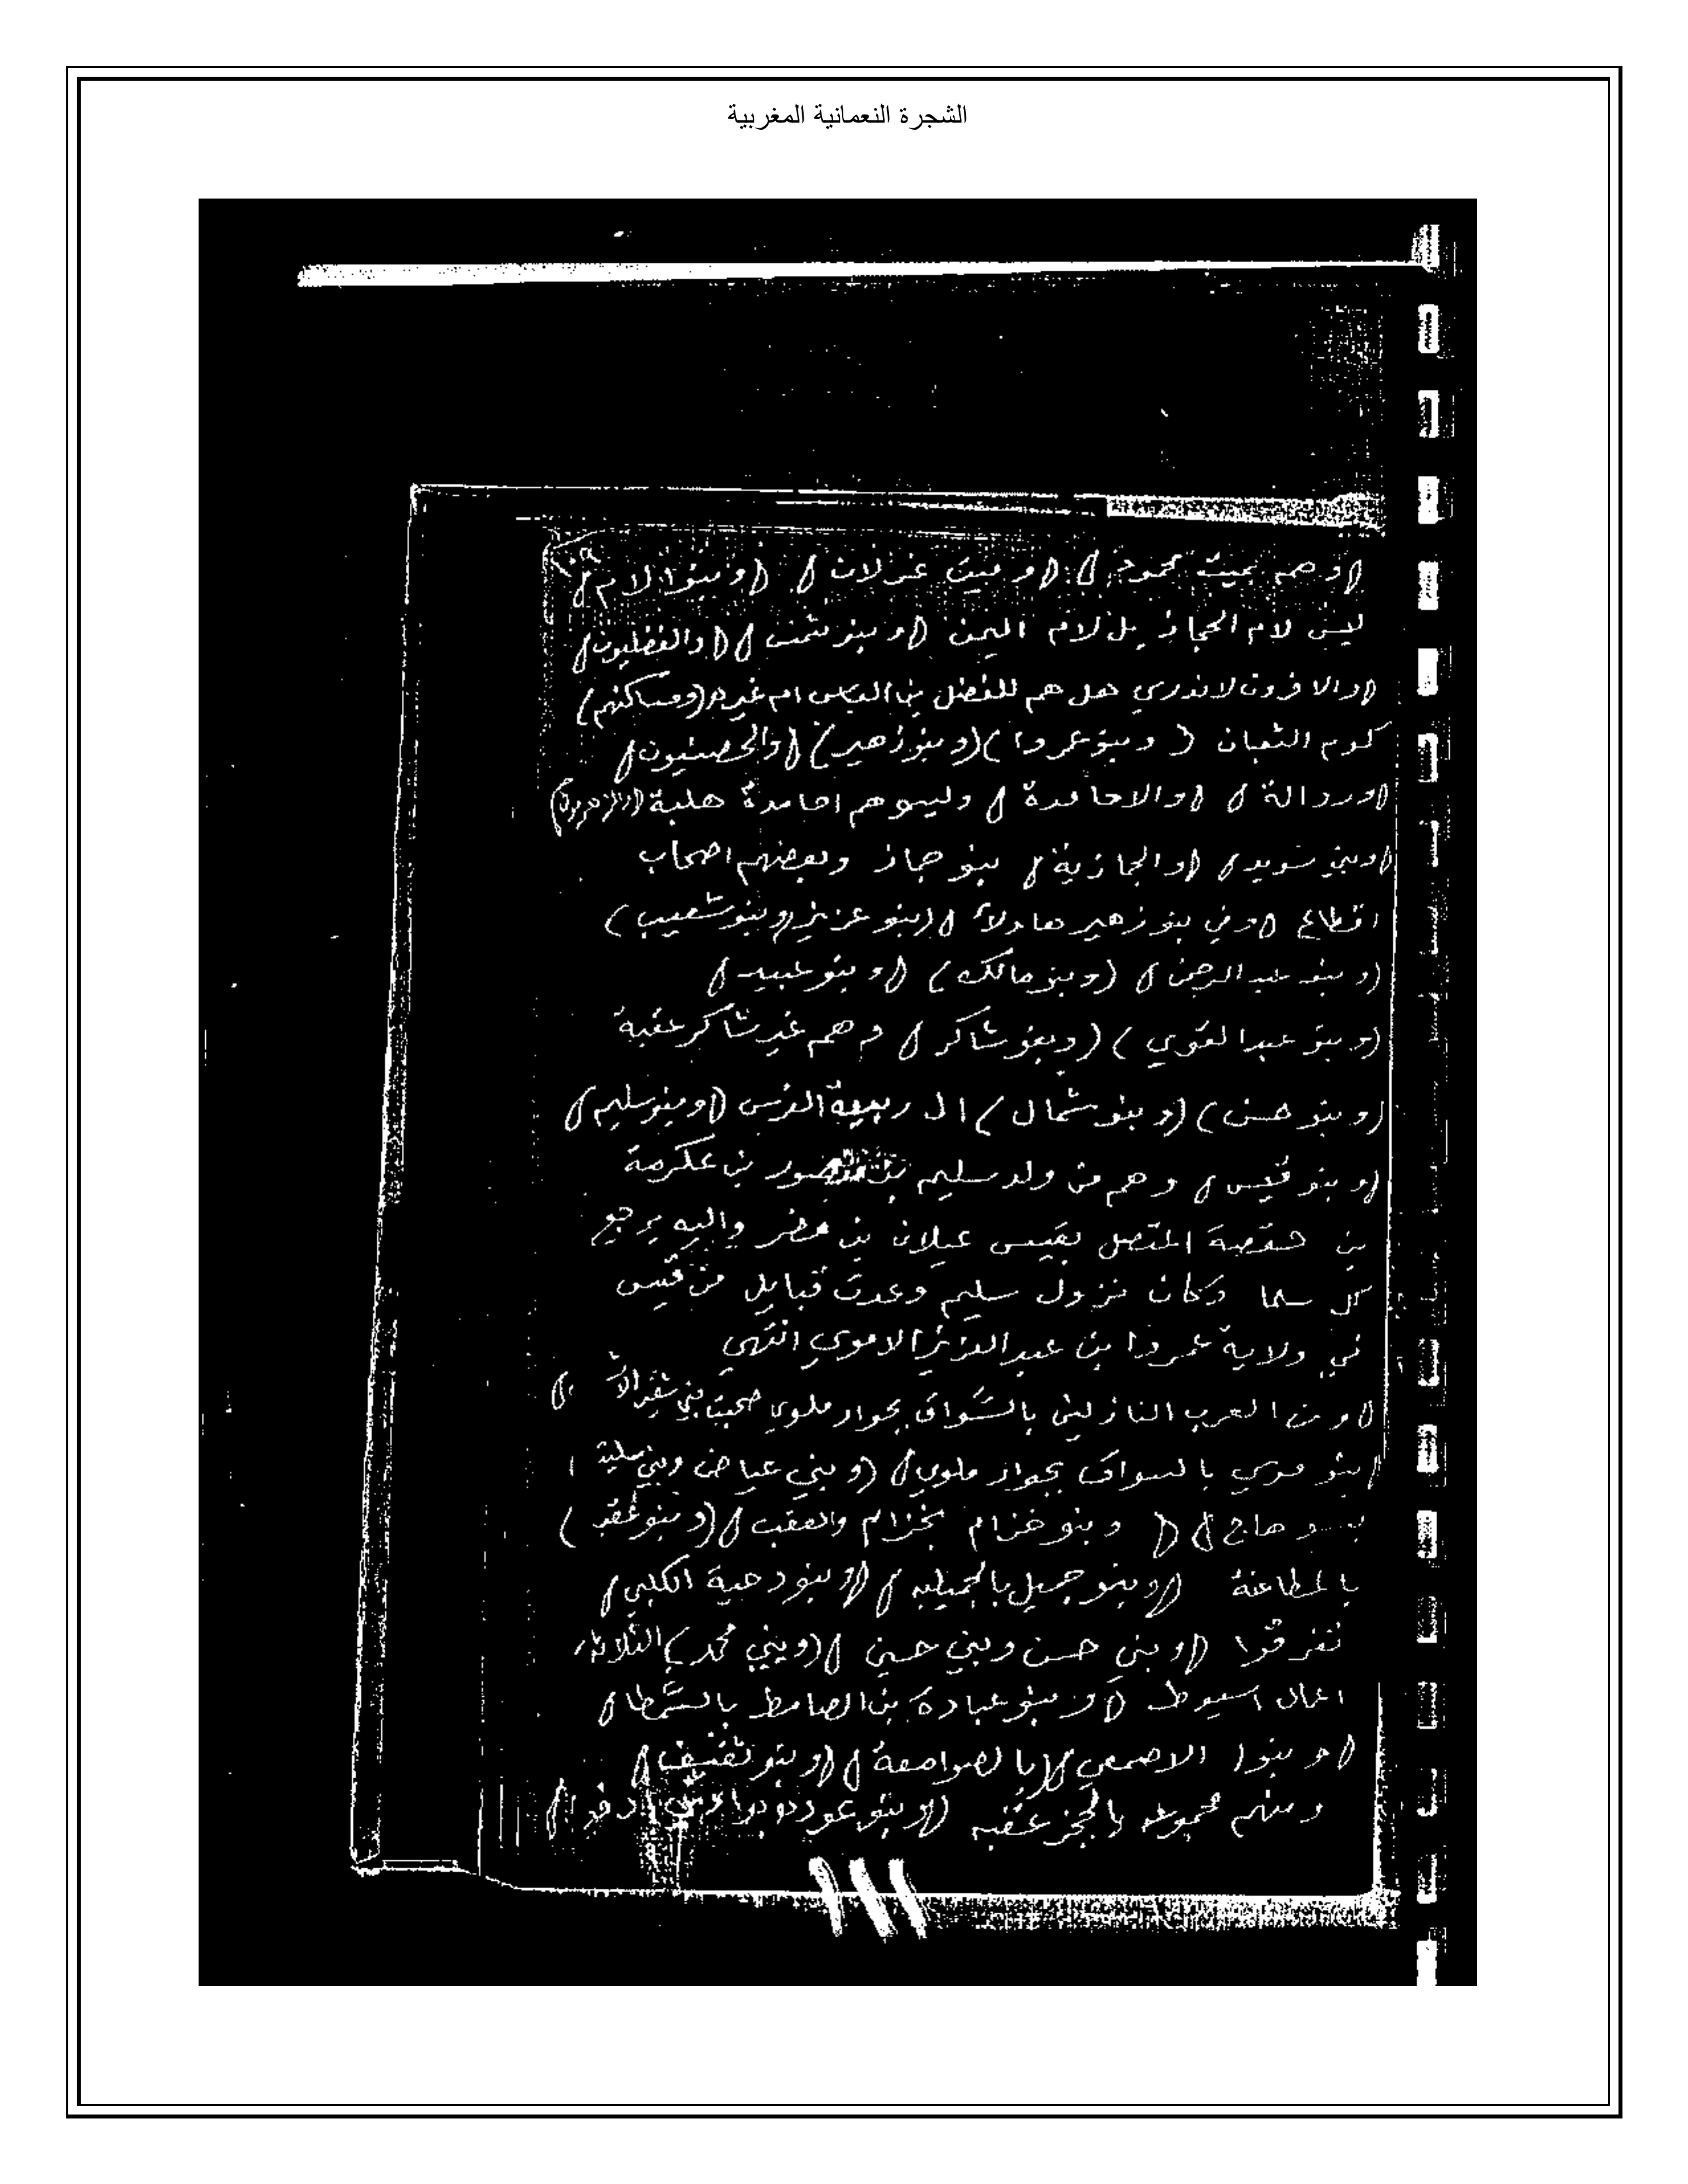 الشجرة النعمانية المغربية
(وهم بميت محمود) (وبيت غزلان) (وبنوا لام)
ليس لام الحجاز بل لام اليمن (وبنو شمس) (والفضليون)
(والافزون لاندري هل هم للفضل بن العباس ام غيره (ومساكنهم)
كوم الثعبان (وبنو عمروا) (وبنو زهير) (والحصنيون)
(وردالة) (والاحامدة) وليسو هم احامدة هلبة
(وبنو سويد) (والجازية) بنو جاز وبعضهم اصحاب
اقطاع (ومن بنو زهير هاولاء) (بنو عزيز (وبنو شعيب)
(وبنو عبد الرحمن) (وبنو مالك) (وبنو عبيد)
(وبنو عبد القوي) (وبنو شاكر) وهم غير شاكر عقبة
(وبنو حسن) (وبنو شمال) ال ربيعة الفرس (وبنو سليم)
(وبنو قيس) وهم من ولد سليم بن منصور بن عكرمة
بن حفصة المتصل بقيس عيلان بن مضر واليه يرجع
كل سلما وكان نزول سليم وعدت قبايل من قيس
في ولاية عمروا بن عبد العزيز الاموي انتهي
(ومن العرب النازلين بالسواق بجوار ملوي صحبت بني
(بنو موسي بالسواق بجوار ملوي) (وبني عياض وبني
بنو حاج) (وبنو خزام بخزام والعقب) (وبنو عقبه)
بالمطاعنة (وبنو جميل بالجميليه) (وبنو دحية الكلبي)
تفرقوا (وبني حسن وبني حسين) (وبني محمد) الثلاثة
اعمال اسيوط (وبنو عبادة بن الصامط بالشمطا)
(وبنوا الاصمعي) (بالصوامعة) (وبنو ثقيف)
ومنهم مجموعه بالجزعقبه (وبنو
١١١